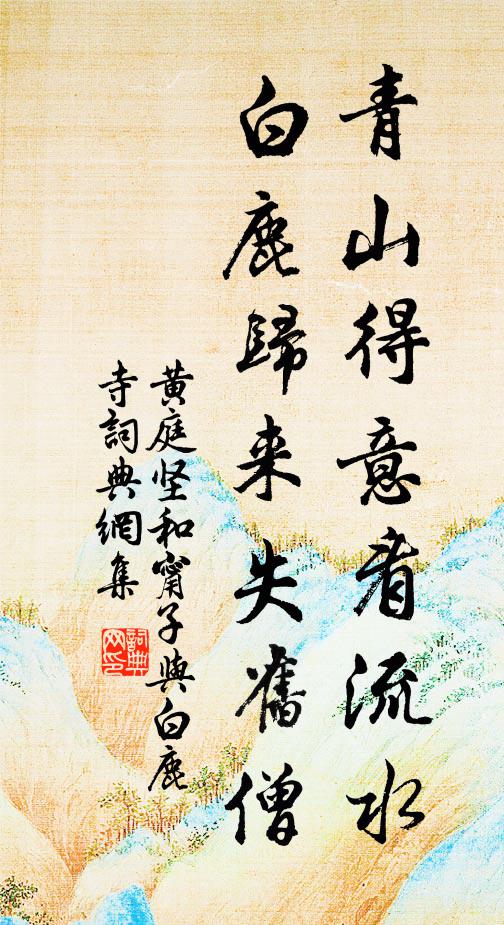 青山得意看流水
白鹿歸来失舊僧
黄庭坚和甯子與白鹿
寺詞典網集
詞典
网印